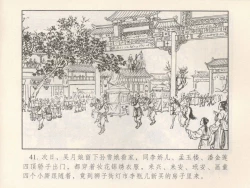 41. 次日，吴月娘留下孙雪娥看家，同李娇儿、孟玉楼、潘金莲
四顶轿子出门，都穿着妆花锦绣衣服，来兴、来安、玳安、画童
四个小厮跟随着，竟到狮子街灯市李瓶儿新买的房子里来。